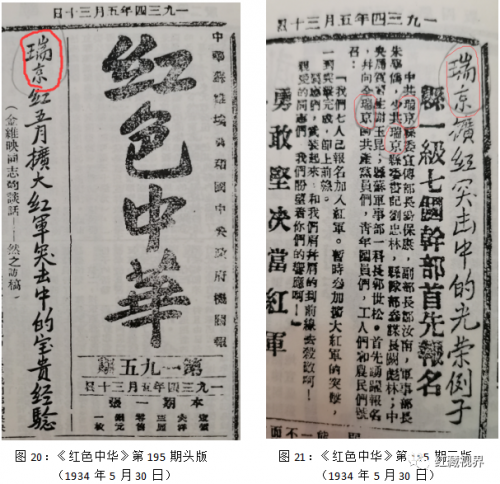 一九三四年五月三十日
紅色中華
中華蘇維埃共和國中央政府機關報
第一九五期
一九三四年五月三十日
本期一張
瑞京紅五月擴大紅軍突击中的宝貴經驗
(金維映同志的談話——然之訪稿)
一九三四年五月三十日
瑞京擴紅突击中的光荣例子
縣一級七個幹部首先報名
勇敢堅决當紅軍
中共瑞京縣委宣傳部長 保康，副部長 汝南，軍事部長
朱學僑，少共瑞京縣委書記劉忠林，縣隊部參謀長 彪林；中
央局 謝玉昆，縣蘇軍事部一科長郭世松。首先踴躍報名
，并向全瑞京的共產黨員們，青年團員們，工人們和農民們號
召：
「我們七人已報名加入紅軍。暫時參加擴大紅軍的突擊，
一到突擊完成，即上前綫。
同志們，武裝起來，和我們 肩的到前綫去殺敵呵！
親愛的同志們，我們盼望着你們的響應啊！」
图 20：《红色中华》第 195 期头版
（1934 年 5 月 30 日）
图 21：《红色中华》第 195 期二版
（1934 年 5 月 30 日）
红藏视界